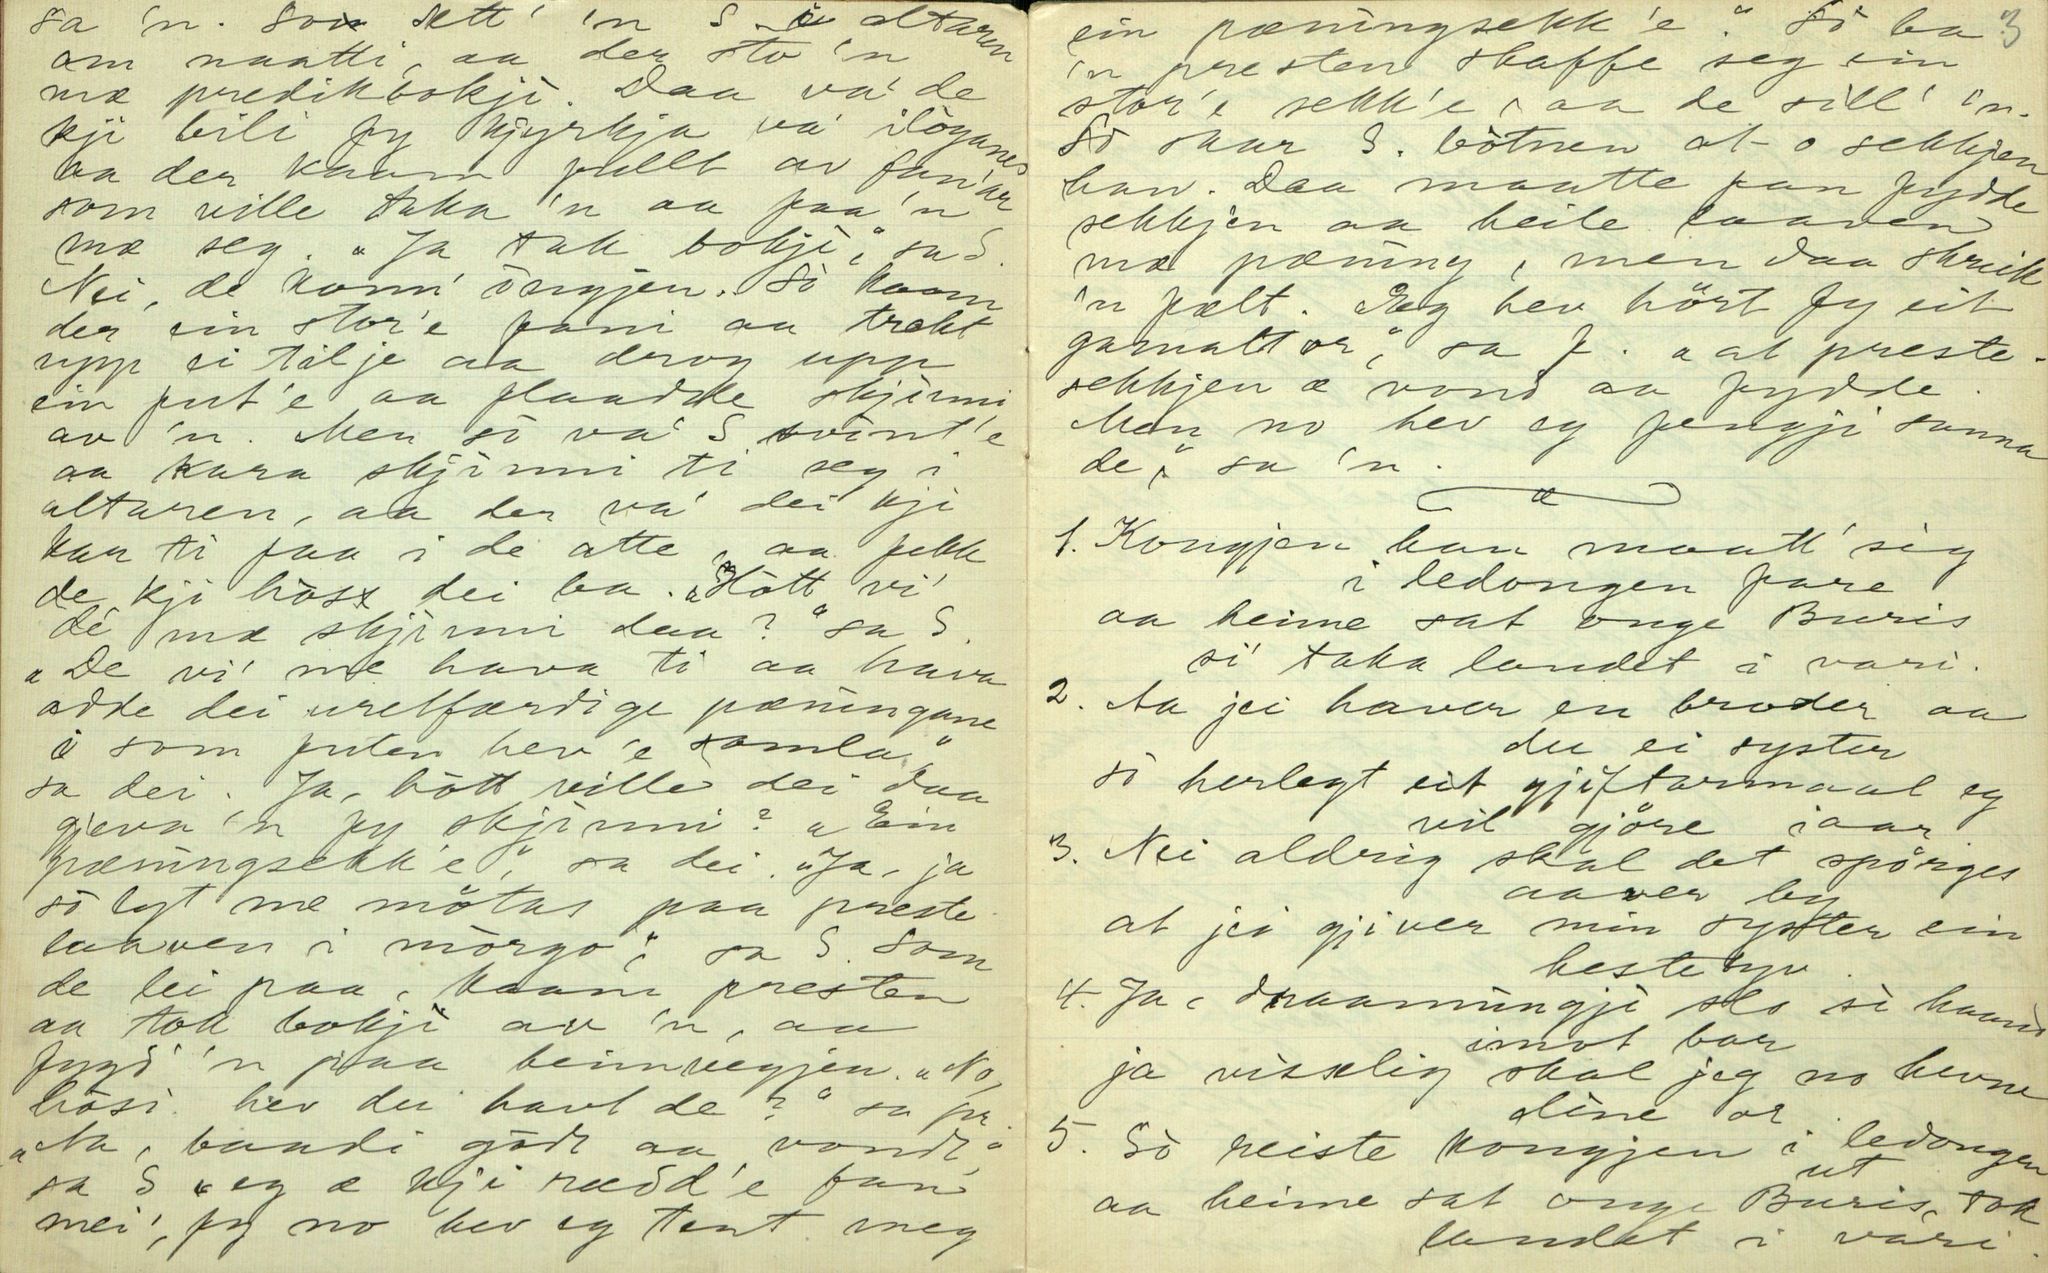 sa 'n. Son sett' 'n S. i altaren
om naatti, aa der sto 'n
mæ predikbokji. Daa va' de
kji bili fy kjyrkja va' ilöganes
aa der kaam fullt av fan'ar
som ville taka 'n aa faa 'n
mæ seg. "Ja tak bokji," sa S.
Nei, de konn' ingjen. So kaam
der ein stor'e fani aa trekt
upp ei tilje aa drog upp
ein fut'e aa flaadde skjinni
av 'n. Men so va' S. svint'e
aa kara skjinni ti seg i
altaren, aa der va' dei kji
kar ti faa i de atte, aa fekk
de kji höss dei ba. "Hött vi'
de mæ skjinni daa?" sa S.
"De vi' me hava ti aa hava
adde dei uretfærdige pæningane
i som futen hev'e samla,"
sa dei. Ja, hött ville dei daa
gjeva 'n fy skjinni? "Ein
pæningsekk'e," sa dei. "Ja, ja
so lyt me mötas paa preste-
laaven i mörgo," sa S. Som
de lei paa, kaam presten
aa tok bokji av 'n, aa
fygd' 'n paa heimvegjen. "No,
höss. hev du havt de?" sa pr.
"Aa, baadi godt aa vondt,"
sa S. "eg æ kji rædd'e fan
mei', fy no hev eg tent meg
3
ein pæningsekk'e." So ba
'n presten skaffe seg ein
stor'e sekk'e, aa de sill' 'n.
So skar S. botnen at-o sekkjen
han. Daa maatte fan fydde
sekkjen aa heile laaven
mæ pæning, men daa skreik
'n fælt. Jeg hev hört fy eit
gamalt or," sa f. "at preste-
sekkjen æ vond aa fydde.
Men no hev eg fengji sanna
de," sa 'n.
1. Kongjen han maatt' sig
i ledongen fare
aa heime sat onge Buris
si' taka landet i vari.
2. Aa jei haver en broder aa
du ei syster
so herlegt eit gjiftarmaal eg
vil gjöre iaar
3. Nei aldrig skal det spörges
aaver by
at jei gjiver min syster ein
hestehyv.
4. Ja, draamningji slo si haand
imot bor
ja visselig skal jeg no hevne
dine or
5. So reiste kongjen i ledongen
ut
aa heime sat onge Buris, tok
landet i vari.